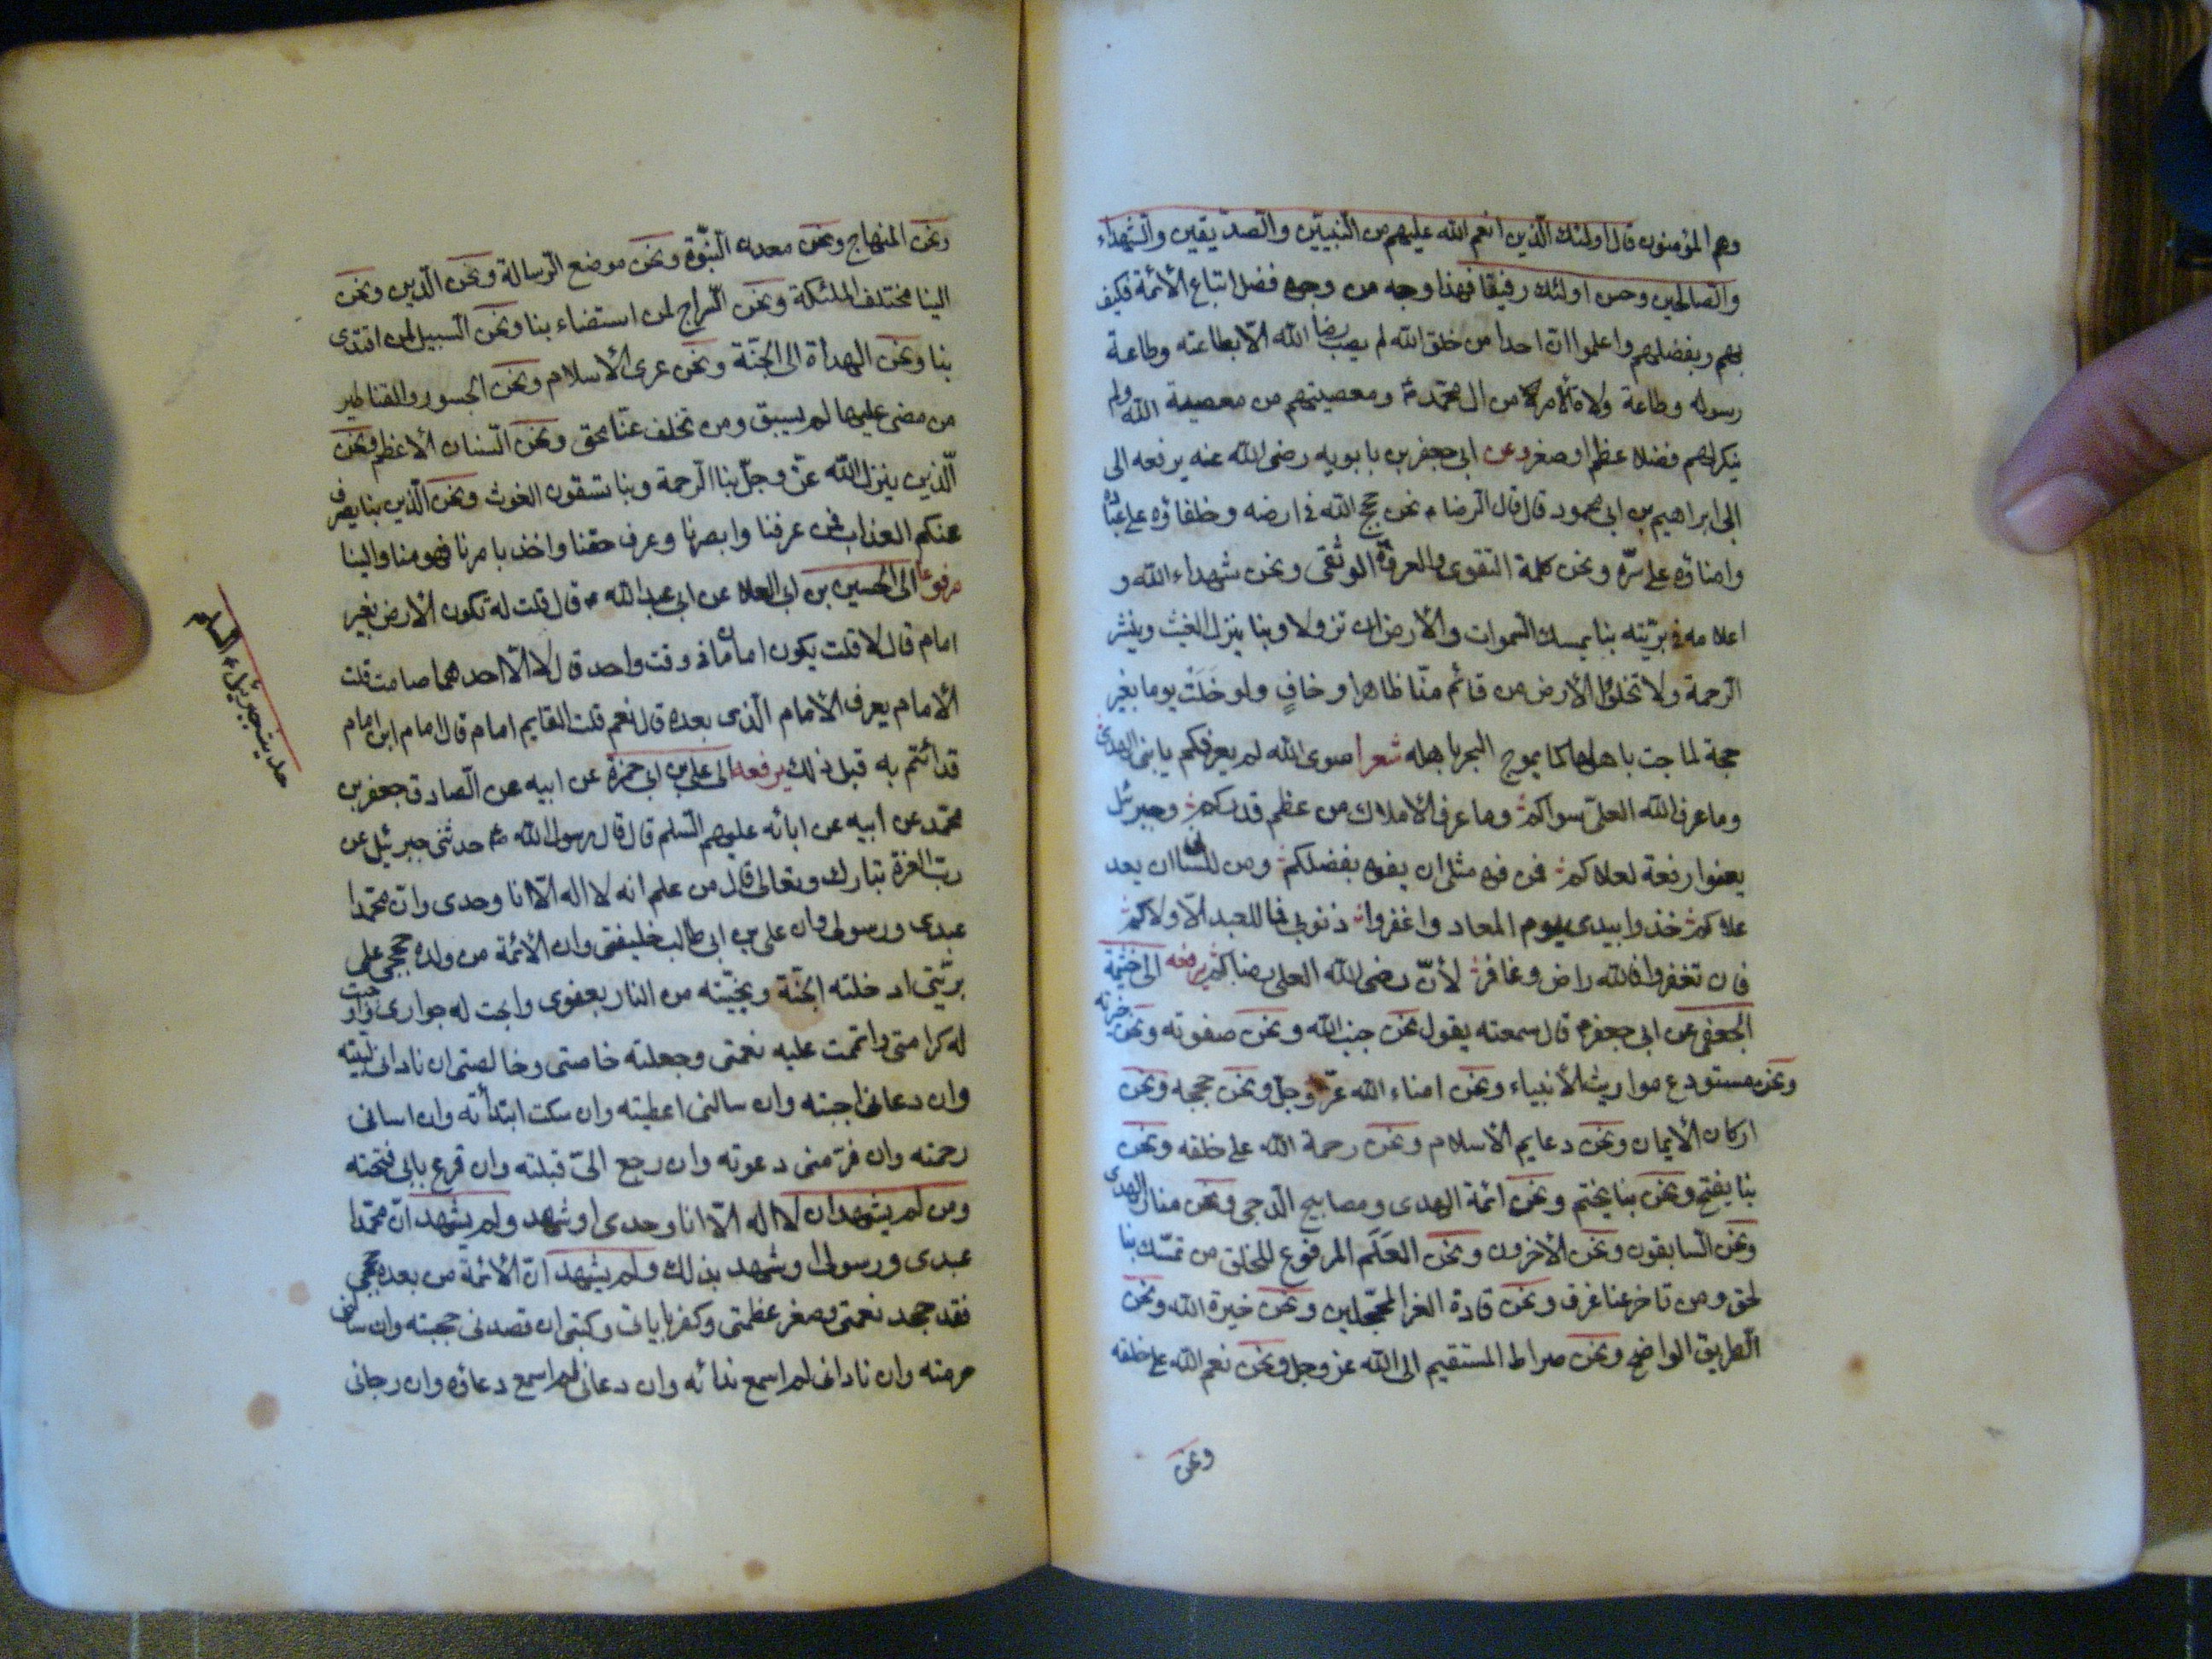 وهم المؤمنون قال اولئك الّذين انعم الله عليهم من النّبيّين والصّدّيقين والشّهداء
والصّالحين وحسن اولئك رفيقا فهذا وجه من وجوه فضل اتباع الأئمة فكيف
بهم وبفضلهم واعلموا انّ احدا من خلق الله لم يصب رضا الله الّا بطاعته وطاعة
رسوله وطاعة ولاة الأمر من ال محمّد ومعصيتهم من معصية الله ولم
ينكر لهم فضلا عظم او صغر وعن ابى جعفر بن بابويه رضى الله عنه يرفعه الى
الى ابراهيم بن ابى محمود قال قال الرّضا نحن حجج الله فى ارضه وخلفاؤه على عباده
وامناؤه على سرّه ونحن كلمة التقوى والعروة الوثقى ونحن شهداء الله و
اعلامه فى بريّته بنا يمسك السّموات والأرض ان تزولا وبنا ينزل الغيث وينشر
الرّحمة ولا تخلو الأرض من قائم منّا ظاهر او خافٍ ولو خَلَتْ يوما بغير
حجة لماجت باهلها كما يموج البحر باهله شعر سوى الله لم يعرفكم يا بنى الهدى
وما عرف الله العلىّ سواكم وما عرف الأملاك من عظم قدركم وجبرئل
يعفوا رفعة لعلاكم فمن فوه مثلى ان يفوه بفضلكم ومن للسان ان يعد
علاكم خذوا بيدى يوم المعاد واغفروا ذنوبى فما للعبد الّا ولاكم
فان تغفروا فالله راض وغافر لأنّ رضى الله العلى رضاكم يرفعه الى خيثمة
الجعفى عن ابى جعفر قال سمعته يقول نحن جنب الله ونحن صفوته ونحن خيرته
ونحن مستودع مواريث الأنبياء ونحن امناء الله عزّ وجلّ ونحن حججه ونحن
اركان الأيمان ونحن دعايم الاسلام ونحن رحمة الله على خلقه ونحن
بنا يفتح ونحن بنا يختم ونحن ائمة الهدى ومصابيح الدّجى ونحن منار الهدى
ونحن السّابقون ونحن الأخرون ونحن العَلَم المرفوع للخلق من تمسّك بنا
لحق ومن تاخر عنا غرق ونحن قادة الغر المحجّلين ونحن خيرة الله ونحن
الطّريق الواضح ونحن صراط المستقيم الى الله عز وجل ونحن نعم الله على خلقه
ونحن
ونحن المنهاج ونحن معدن النّبوّة ونحن موضع الرّسالة ونحن الّدين ونحن
الينا مختلف الملئكة ونحن السّراج لمن استضاء بنا ونحن السّبيل لمن اقتدى
بنا ونحن الهداة الى الجنّة ونحن عرى الأسلام ونحن الجسور والقناطير
من مضى عليها لم يسبق ومن تخلف عنّا محق ونحن السّنان الأعظم ونحن
الّذين ينزل الله عزّ وجلّ بنا الرّحمة وبنا تسقون الغوث ونحن الّذين بنا يصرف
عنكم العذاب فمن عرفنا وابصرنا وعرف حقنا واخذ بامرنا فهو منا والينا
مرفوعا الى الحسين بن ابى العلا عن ابى عبد الله قال قلت له تكون الأرض بغير
امام قال لا قلت يكون امامان فى وقت واحد قال لا الّا احدهما صامت قلت
الأمام يعرف الأمام الّذى بعده قال نعم قلت القايم امام قال امام ابن امام
قد ائتم به قبل ذلك يرفعه الى على بن ابى حمزة عن ابيه عن الصّادق جعفر بن
محمّد عن ابيه عن ابائه عليهم السّلم قال قال رسول الله حدثنى جبرئيل عن
ربّ العزة تبارك وتعالى قال من علم انه لا اله الّا انا وحدى وانّ محمّدا
عبدى ورسولى وان على بن ابى طالب خليفتى وان الأئمة من ولده حججى على
بريّتى ادخلته الجنّة ونجيّته من النار بعفوى وابحت له جوارى واوجبت
له كرامتى واتممت عليه نعمتى وجعلته خاصتى وخالصتى ان نادانى لبيته
وان دعانى اجبته وان سالنى اعطيته وان سكت ابتدأته وان اسائى
رحمته وان فرّ منى دعوته وان رجع الىّ قبلته وان قرع بابى فتحته
ومن لم يشهد ان لا اله الّا انا وحدى او شهد ولم يشهد انّ محمّدا
عبدى ورسولى او شهد بذلك ولم يشهد انّ الأئمة من بعده حججى
فقد جحد نعمتى وصغر عظمتى وكفر باياتى وكتبى ان قصدنى حجبته وان سالنى
حرمته وان نادانى لم اسمع ندائه وان دعانى لم اسمع دعاؤه وان رجانى
حديث جبريل عليه السلام